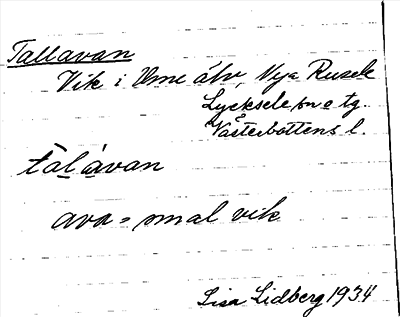 Tallavan
Vik i Ume älv, Nya Rusele
Lycksele sn o tg.
Västerbottens l.
tàl àvan
ava = smal vik
Lisa Lidberg 1934